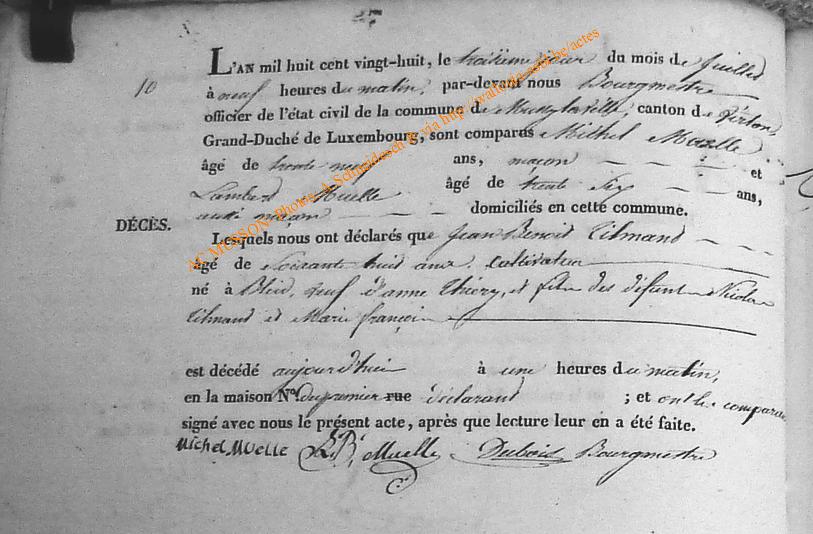 L'AN mil huit cent vingt-huit, le troisième jour du mois de juillet
10
à neuf heures du matin, par-devant nous Bourgmestre
officier de l'état civil de la commune de Mussy la ville, canton de Virton
Grand-Duché de Luxembourg, sont comparus Michel Muelle
âgé de trente neuf ans, maçon et
Lambert Muelle âgé de trente six ans,
aussi maçon domiciliés en cette commune.
DÉCÈS.
Lesquels nous ont déclarés que Jean Benoit Tilmand
âgé de soixante huit ans. Cultivateur
né à Bleid, veuf d'anne Thiery, et fils des défunts Nicolas
Tilmand et Marie françois
est décédé aujourd'hui à une heures du matin,
en la maison No. du premier rue déclarant ; et ont les comparans
signé avec nous le présent acte, après que lecture leur en a été faite.
Michel Muelle L.B. Muelle Dubois Bourgmestre